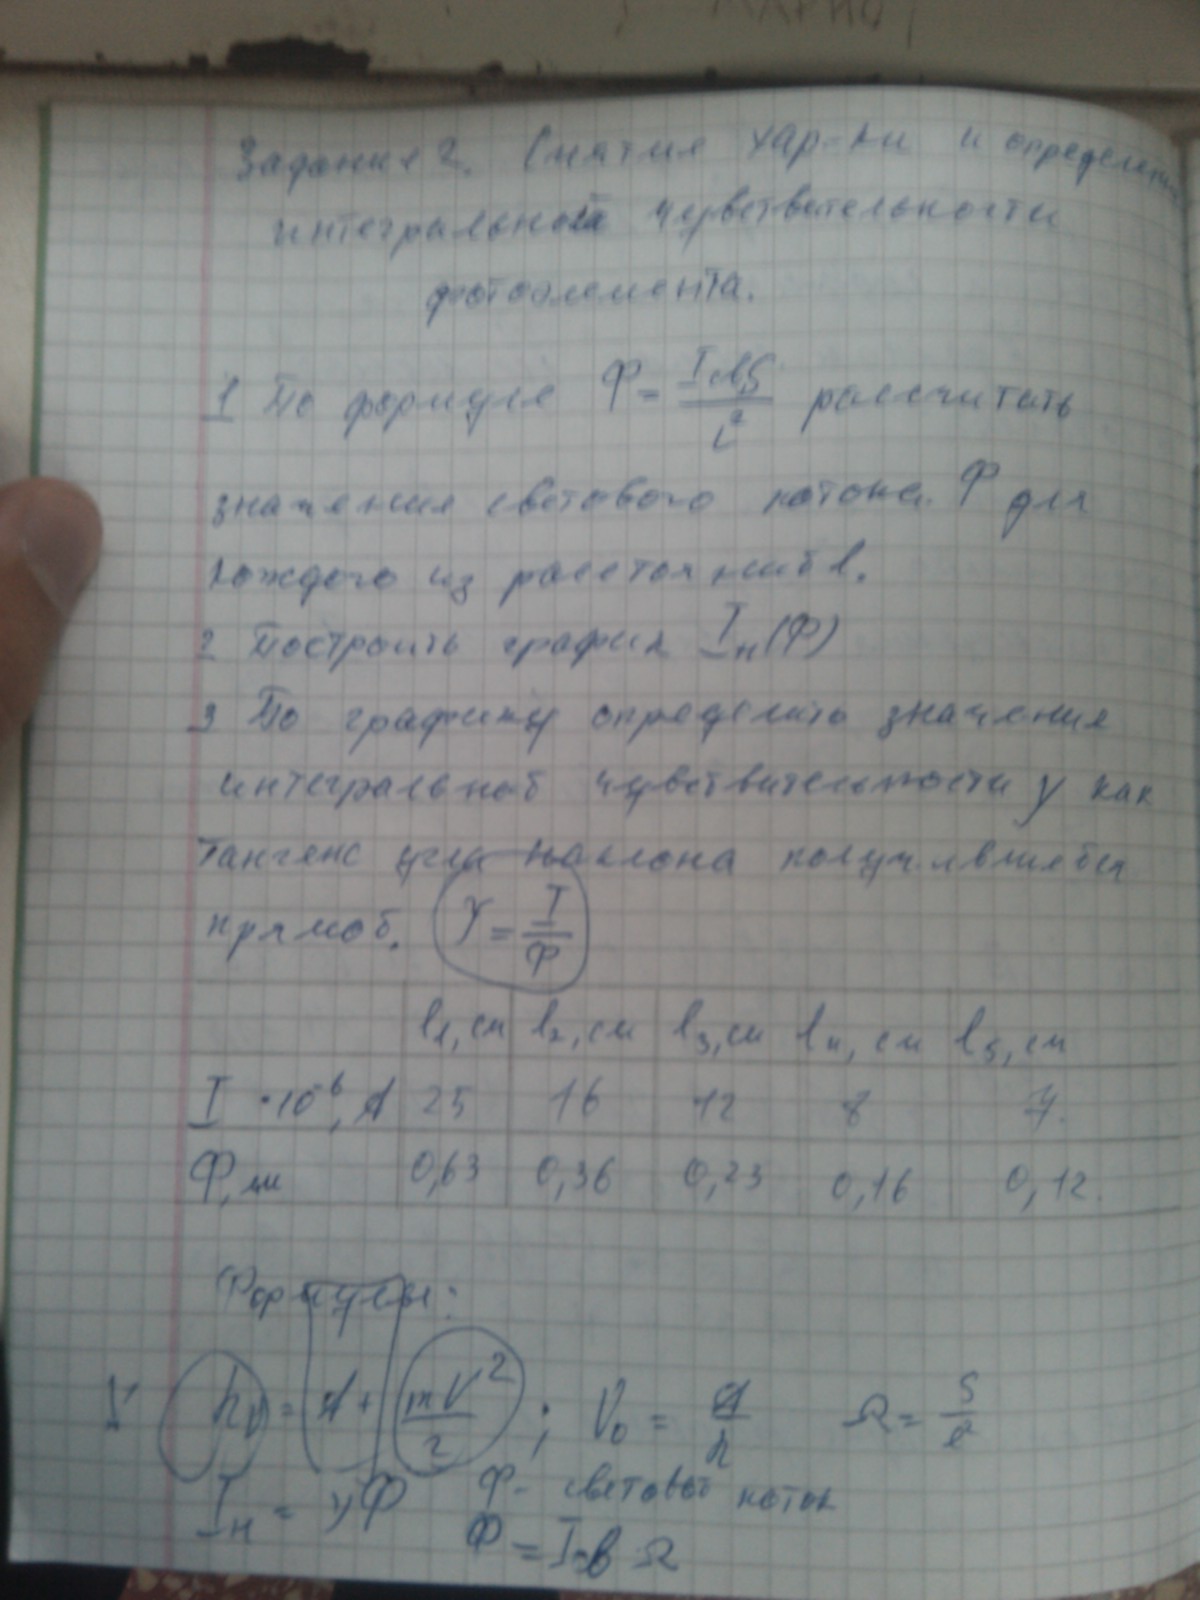 Задание 2. Снятие хар-ки и определени
интегральной чувствительности
фотоэлемента.
1 По формуле Ф = Iсв S / l² рассчитать
значения светового потока Ф для
каждого из расстояний l.
2 Построить график Iн(Ф)
3 По графику определить значения
интегральной чувствительности γ как
тангенс угла наклона получившейся
прямой. γ = I / Ф
l1, см l2, см l3, см l4, см l5, см
I · 10⁻⁶, А 25 16 12 8 7.
Ф, лм 0,63 0,36 0,23 0,16 0,12.
Формулы:
hν = A + mV² / 2 ; ν₀ = A / h Ω = S / l²
Iн = γФ Ф - световой поток
Ф = Iсв Ω